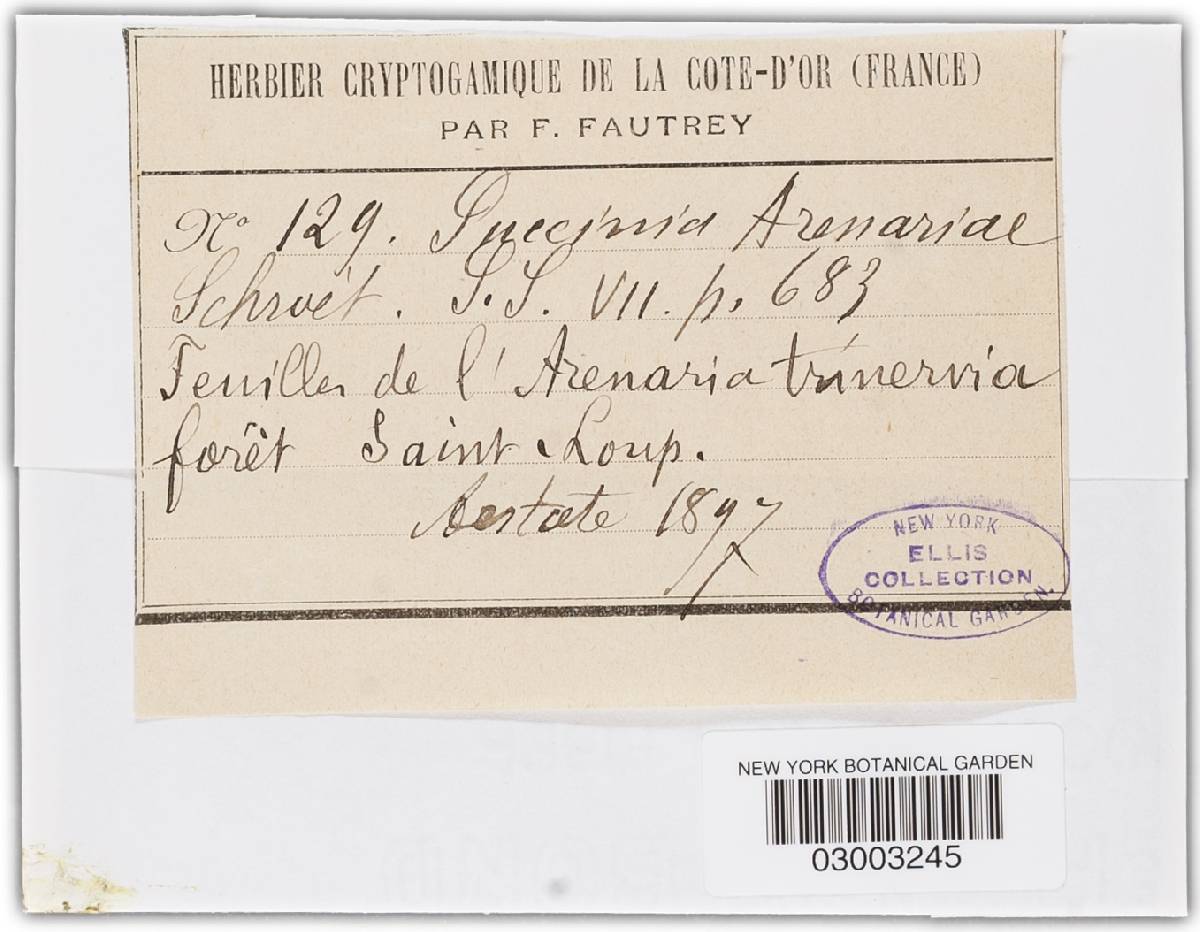 HERBIER CRYPTOGAMIQUE DE LA COTE-D'OR (FRANCE)
PAR F. FAUTREY
No 129. Puccinia Arenariae
Schroët. S.S. VII. p. 683
Feuilles de l'Arenaria trinervia
forêt Saint-Loup.
Aestate 1897
NEW YORK
ELLIS
COLLECTION
BOTANICAL GARDEN.
NEW YORK BOTANICAL GARDEN
03003245